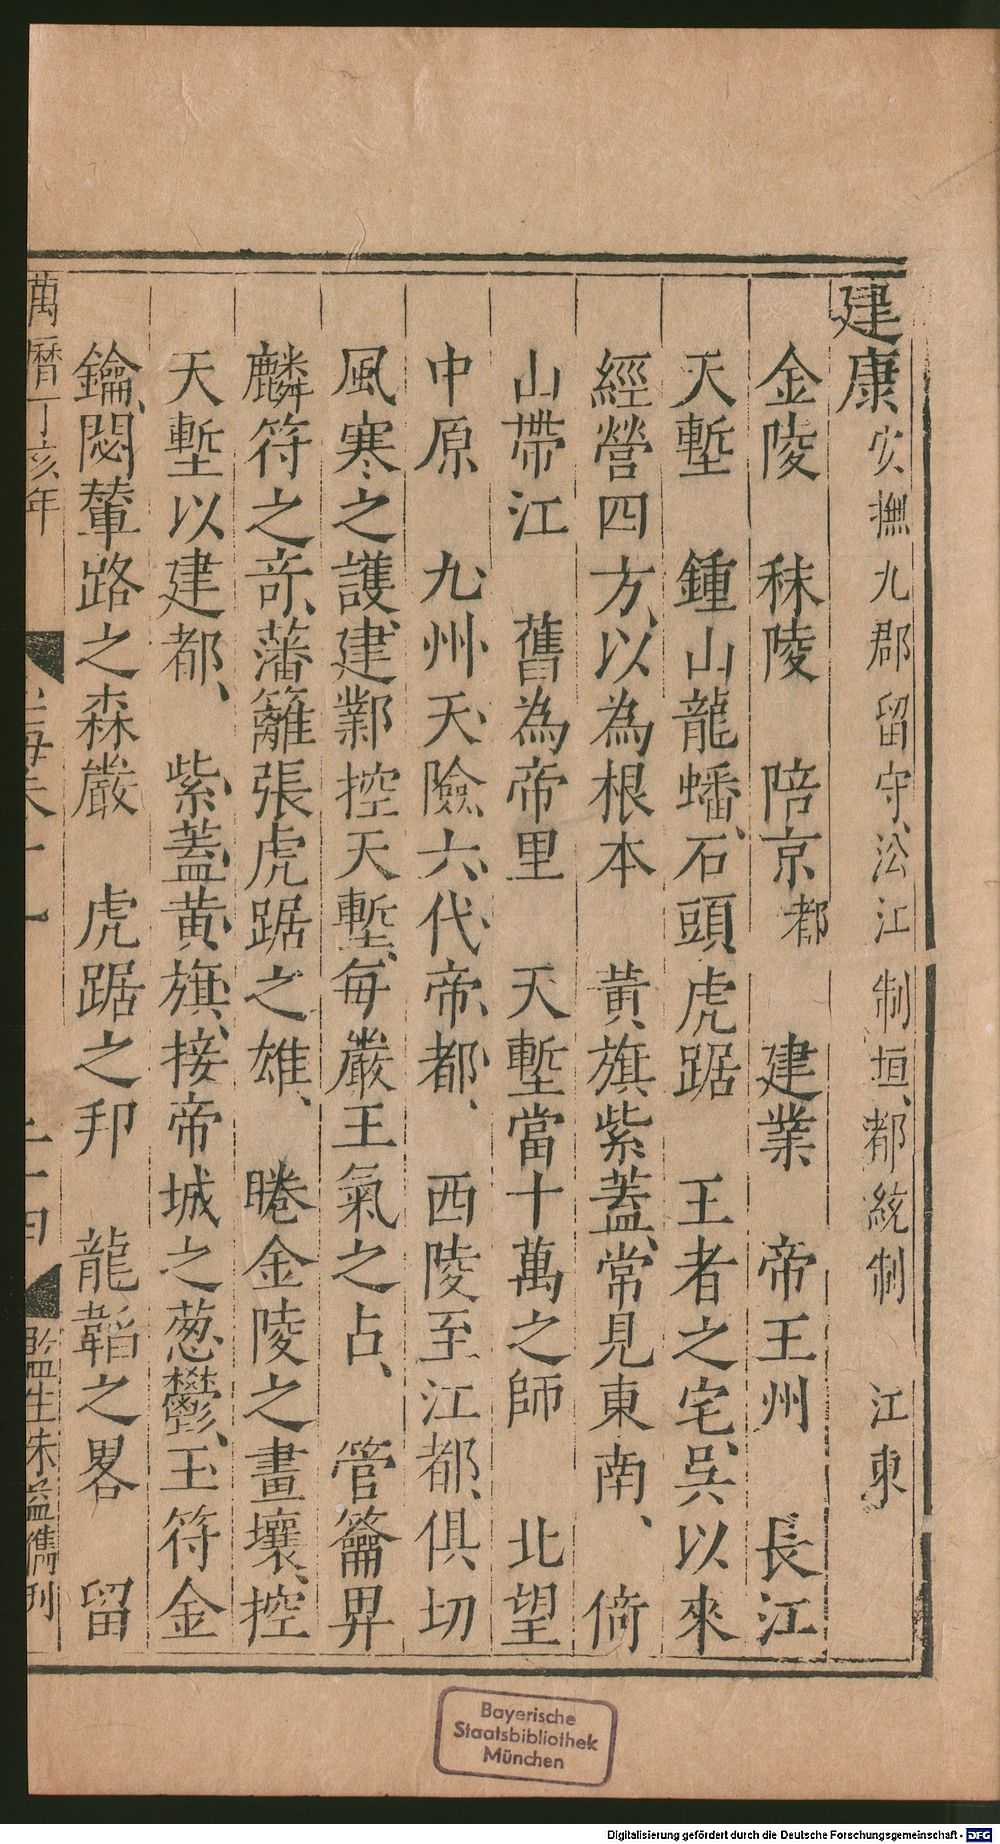 建康安撫九郡留守沿江制垣、都統制 江東
金陵 秣陵 陪京都 建業 帝王州 長江
天塹 鍾山龍蟠、石頭虎踞 王者之宅、吳以來
經營四方、以為根本 黃旗紫蓋、常見東南、 倚
山帶江 舊為帝里 天塹當十萬之師 北望
中原 九州天險、六代帝都、 西陵至江都、俱切
風寒之護、建鄴控天塹、每嚴王氣之占、 管籥畀
麟符之奇、藩籬張虎踞之雄、 睠金陵之畫壤、控
天塹以建都、 紫蓋黃旗、接帝城之葱鬱、玉符金
鑰、閟輦路之森嚴 虎踞之邦 龍韜之畧 留
萬曆丁亥年
監生朱益儁刊
Bayerische
Staatsbibliothek
München
Digitalisierung gefördert durch die Deutsche Forschungsgemeinschaft - DFG